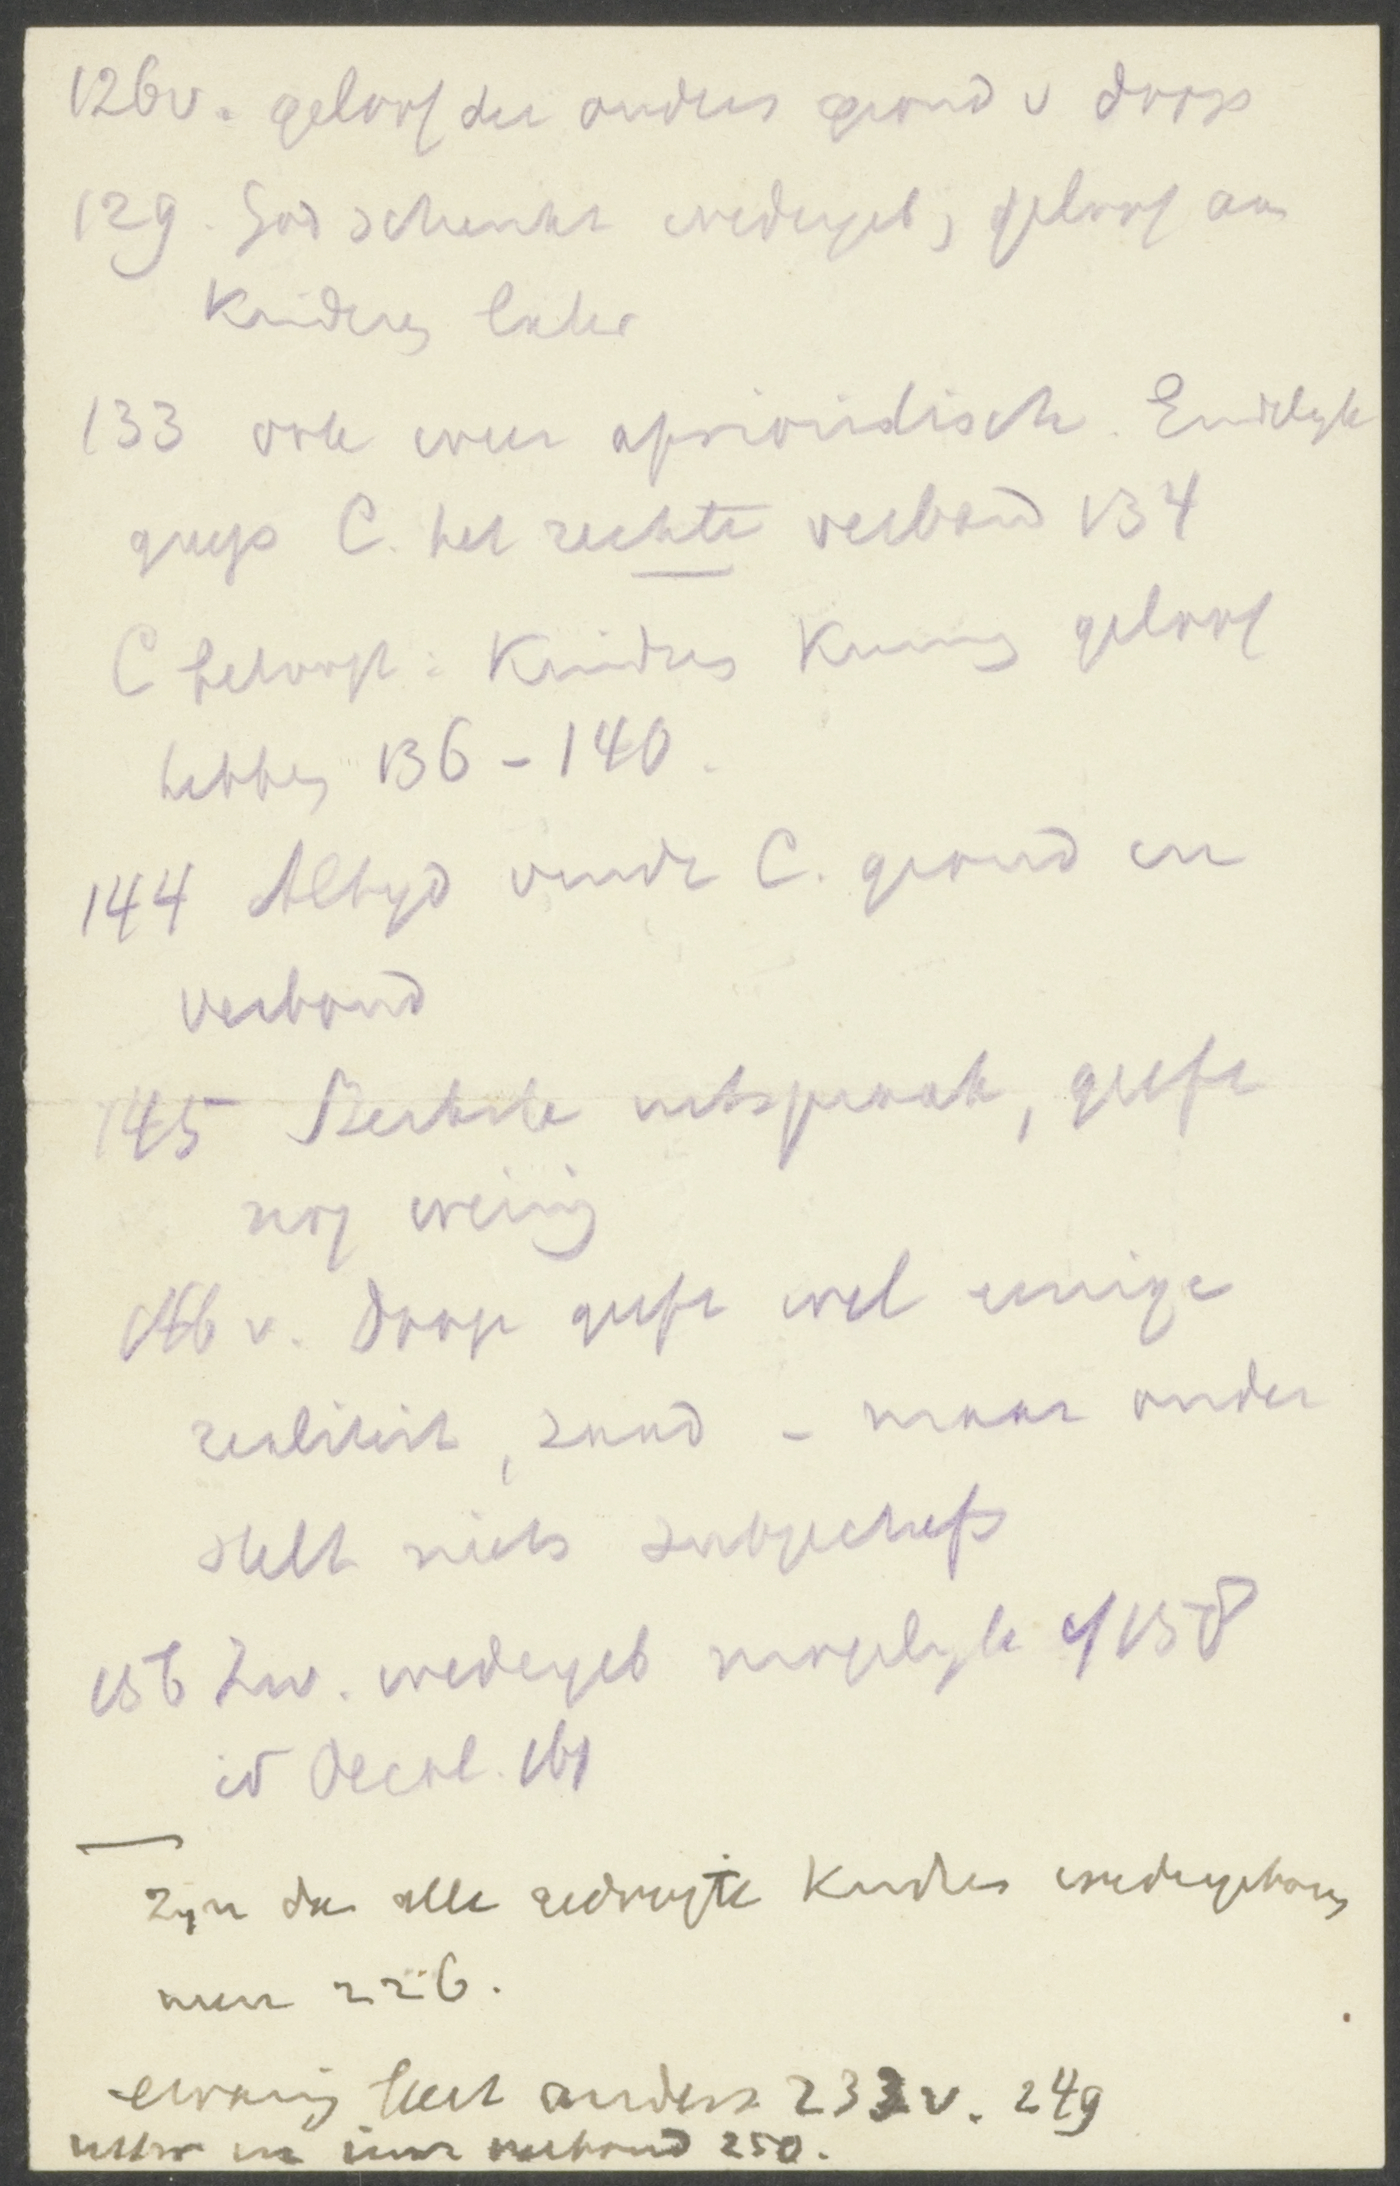 126v. geloof der ouders grond v doop
129. God schenkt wedergeb, geloof aan
Kinderen later
133 ook weer aprioristisch. Eindelyk
greep C. het rechte verband 134
C betoogt: Kinderen Kunnen geloof
hebben 136 - 140.
144 Altyd vindt C. grond in
verbond
145 Sterkste uitspraak, geeft
nog weinig
146 v. Doop geeft wel eenige
realiteit, zaad - maar onder
stelt niets subjectiefs
156 Zw. wedergeb mogelyk cf 158
id Decal. 161
Zyn dan alle gedoopte Kinderen wedergeboren
neen 226.
ervaring leert anders 233v. 249
uitw en inw verbond 250.